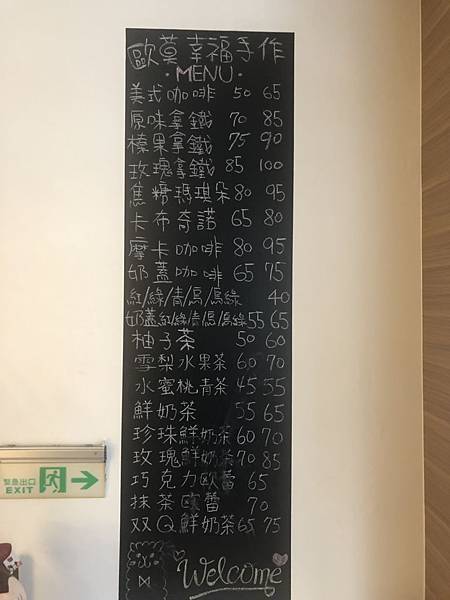 歐莫幸福手作
·MENU·
美式咖啡 50 65
原味拿鐵 70 85
榛果拿鐵 75 90
玫瑰拿鐵 85 100
焦糖瑪琪朵 80 95
卡布奇諾 65 80
摩卡咖啡 80 95
奶蓋咖啡 65 75
紅/綠/青/烏/烏綠 40
奶蓋紅/綠/青/烏/烏綠 55 65
柚子茶 50 60
雪梨水果茶 60 70
水蜜桃青茶 45 55
鮮奶茶 55 65
珍珠鮮奶茶 60 70
玫瑰鮮奶茶 70 85
巧克力歐蕾 65
抹茶歐蕾 70
双Q鮮奶茶 65 75
Welcome
緊急出口
EXIT